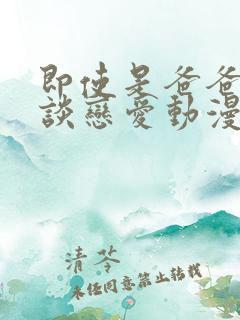 即使是爸爸
談戀愛動漫
清苓
未經同意禁止轉載